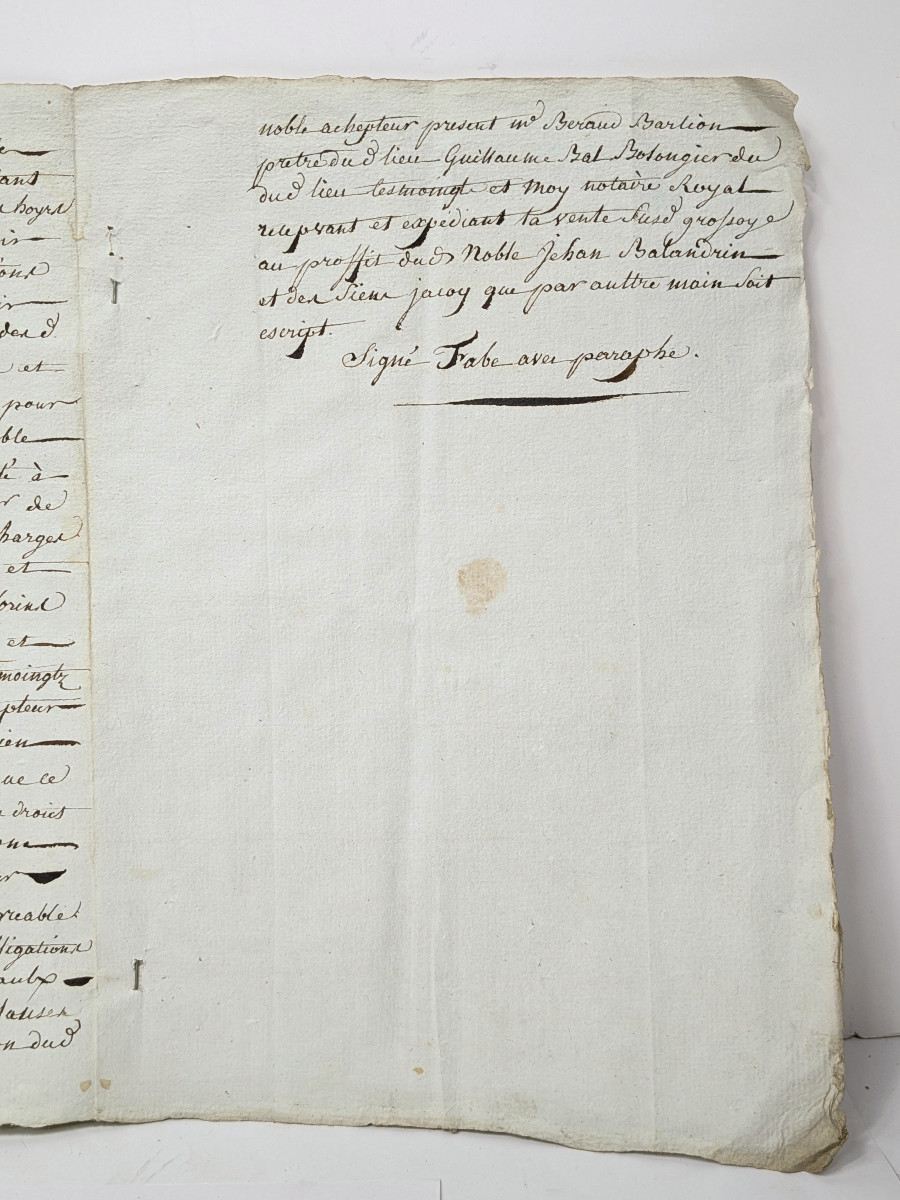 ant
hoyrs
oir
ions
oir
des d
et
pour
ble
té à
r de
harges
et
lorins
et
moingtz
pteur
ien
ue ce
droits
one
reable
ligations
aulx
Clauses
on dud
noble achepteur present mr Beraud Barlion
pretre du d lieu Guillaume Bal Bolongier du
dud lieu tesmoingts et moy notaire Royal
recepvant et expédiant la vente susd grossoyé
au proffit dud Noble Jehan Balandrin
et des siens jacoy que par aulttre main soit
escript.
Signé Fabe avec paraphe.